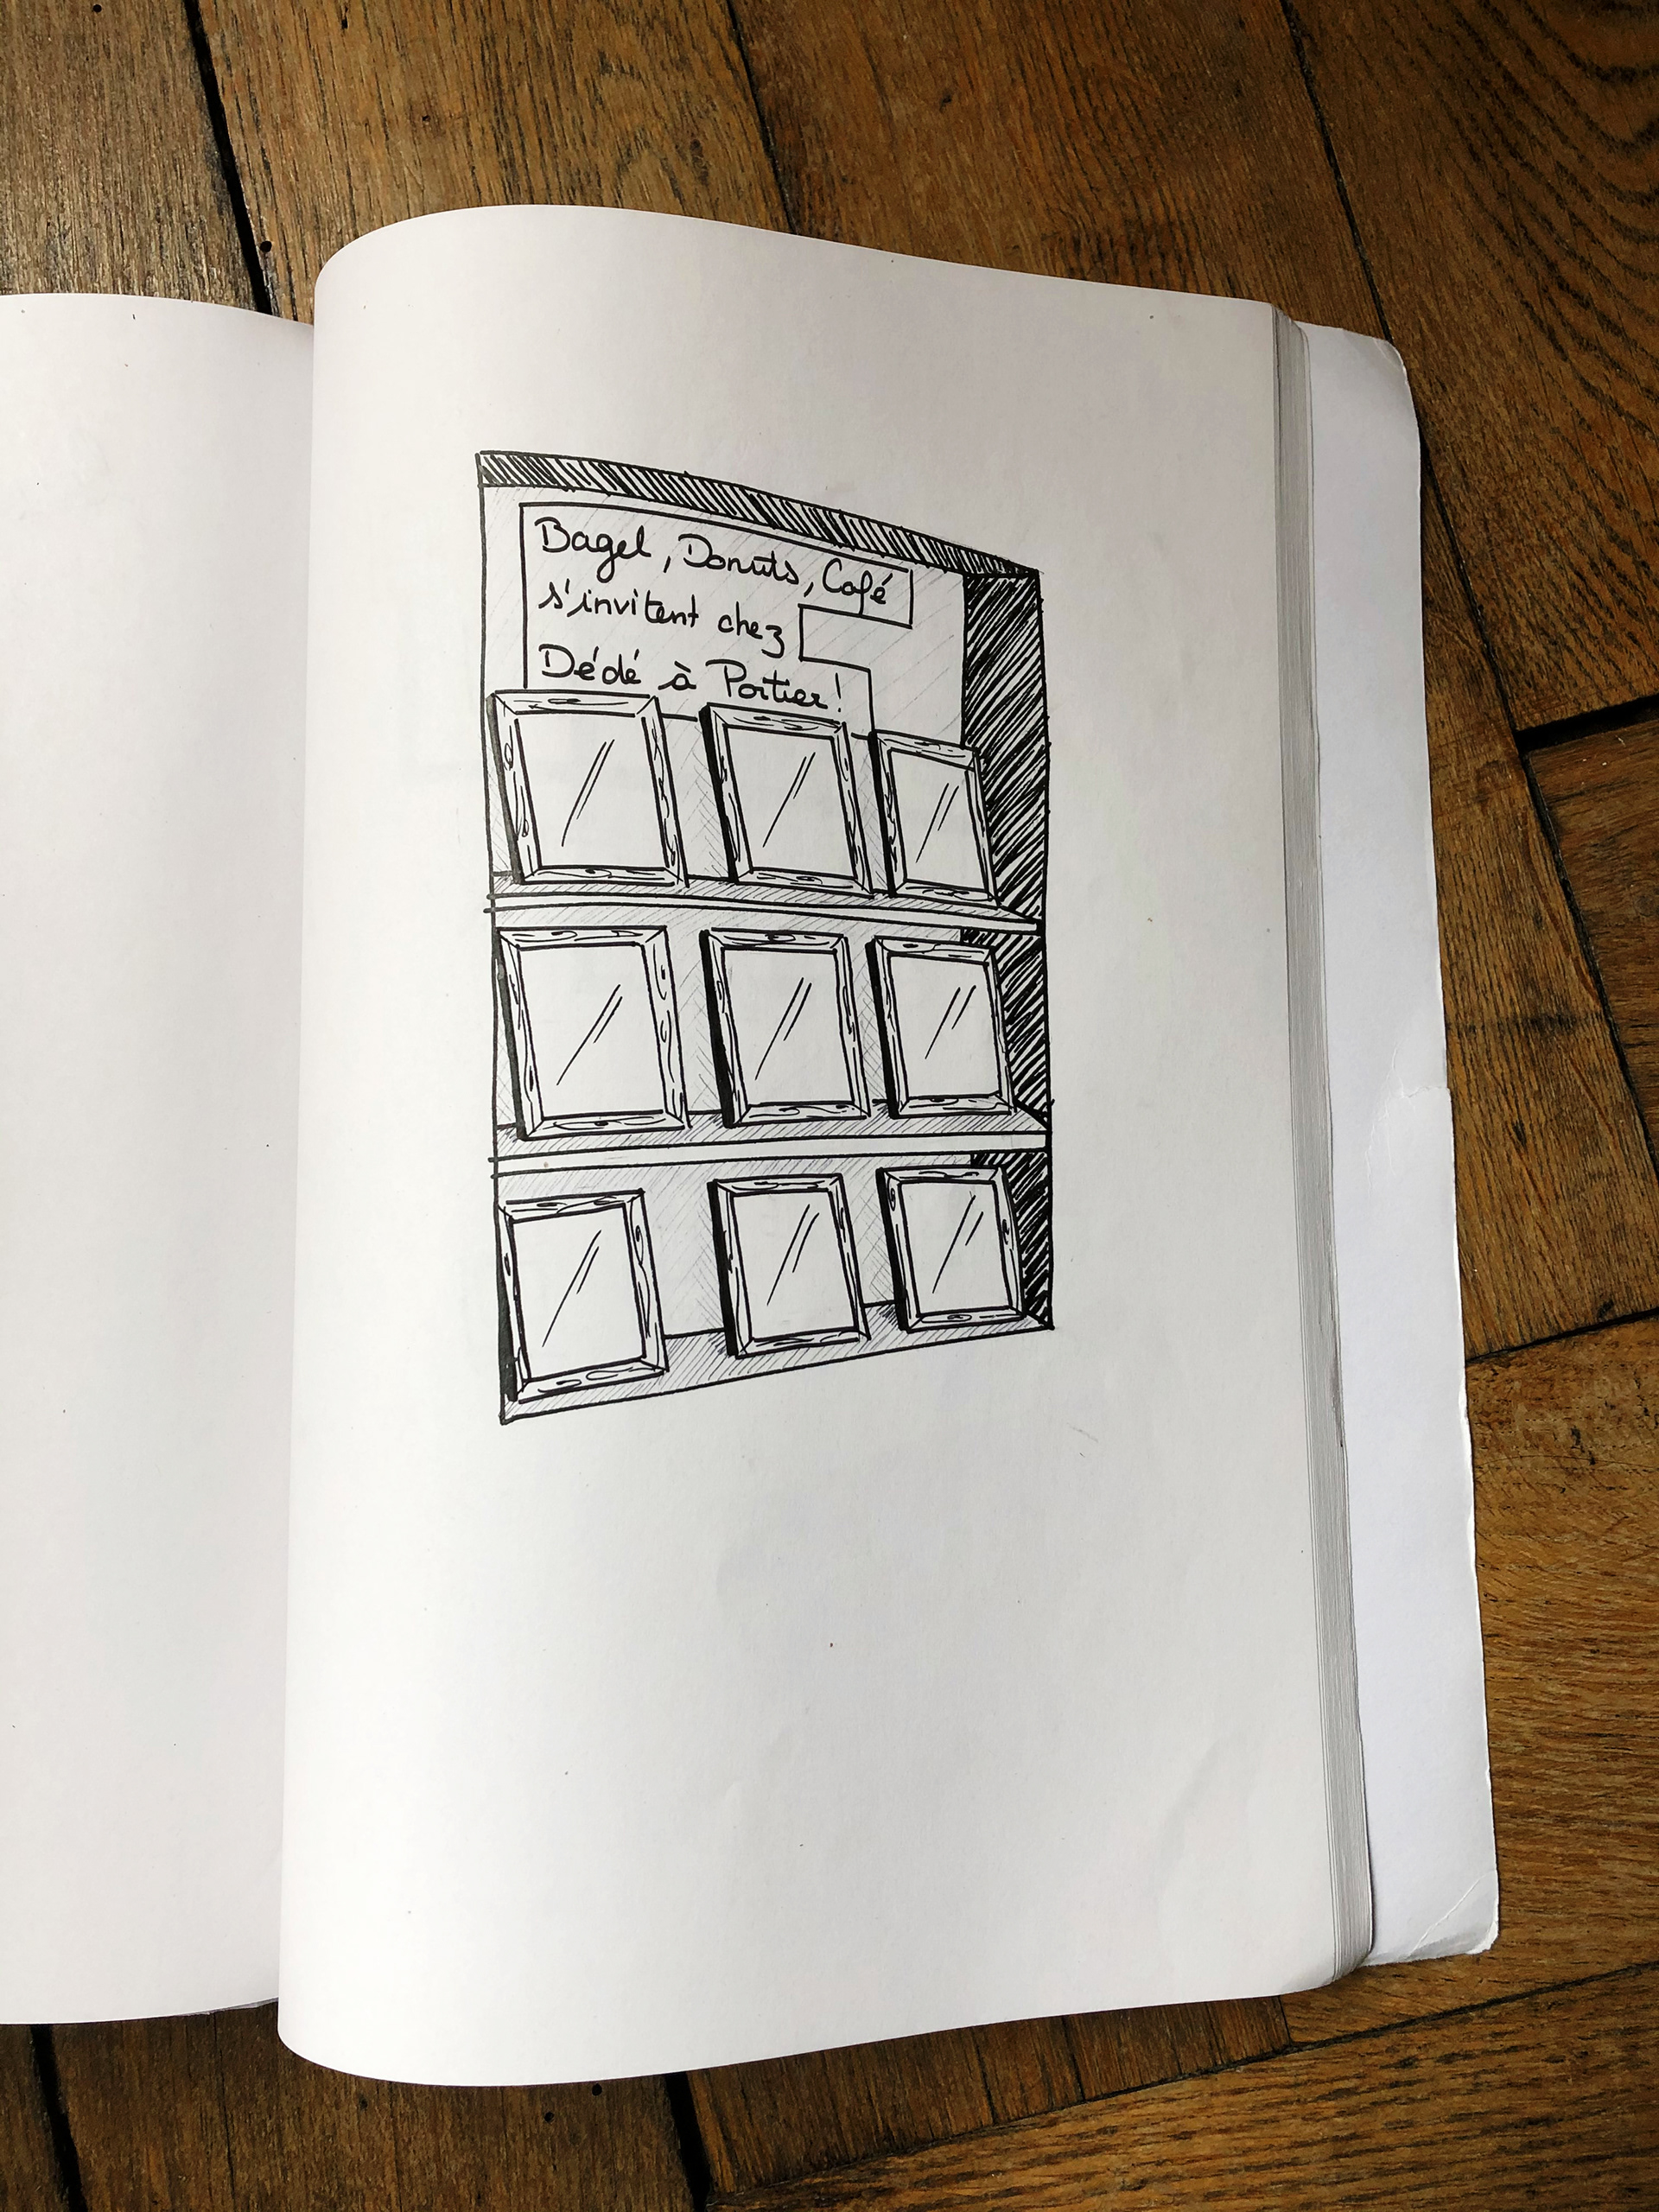 Bagel, Donuts, Café
s'invitent chez
Dédé à Portier!